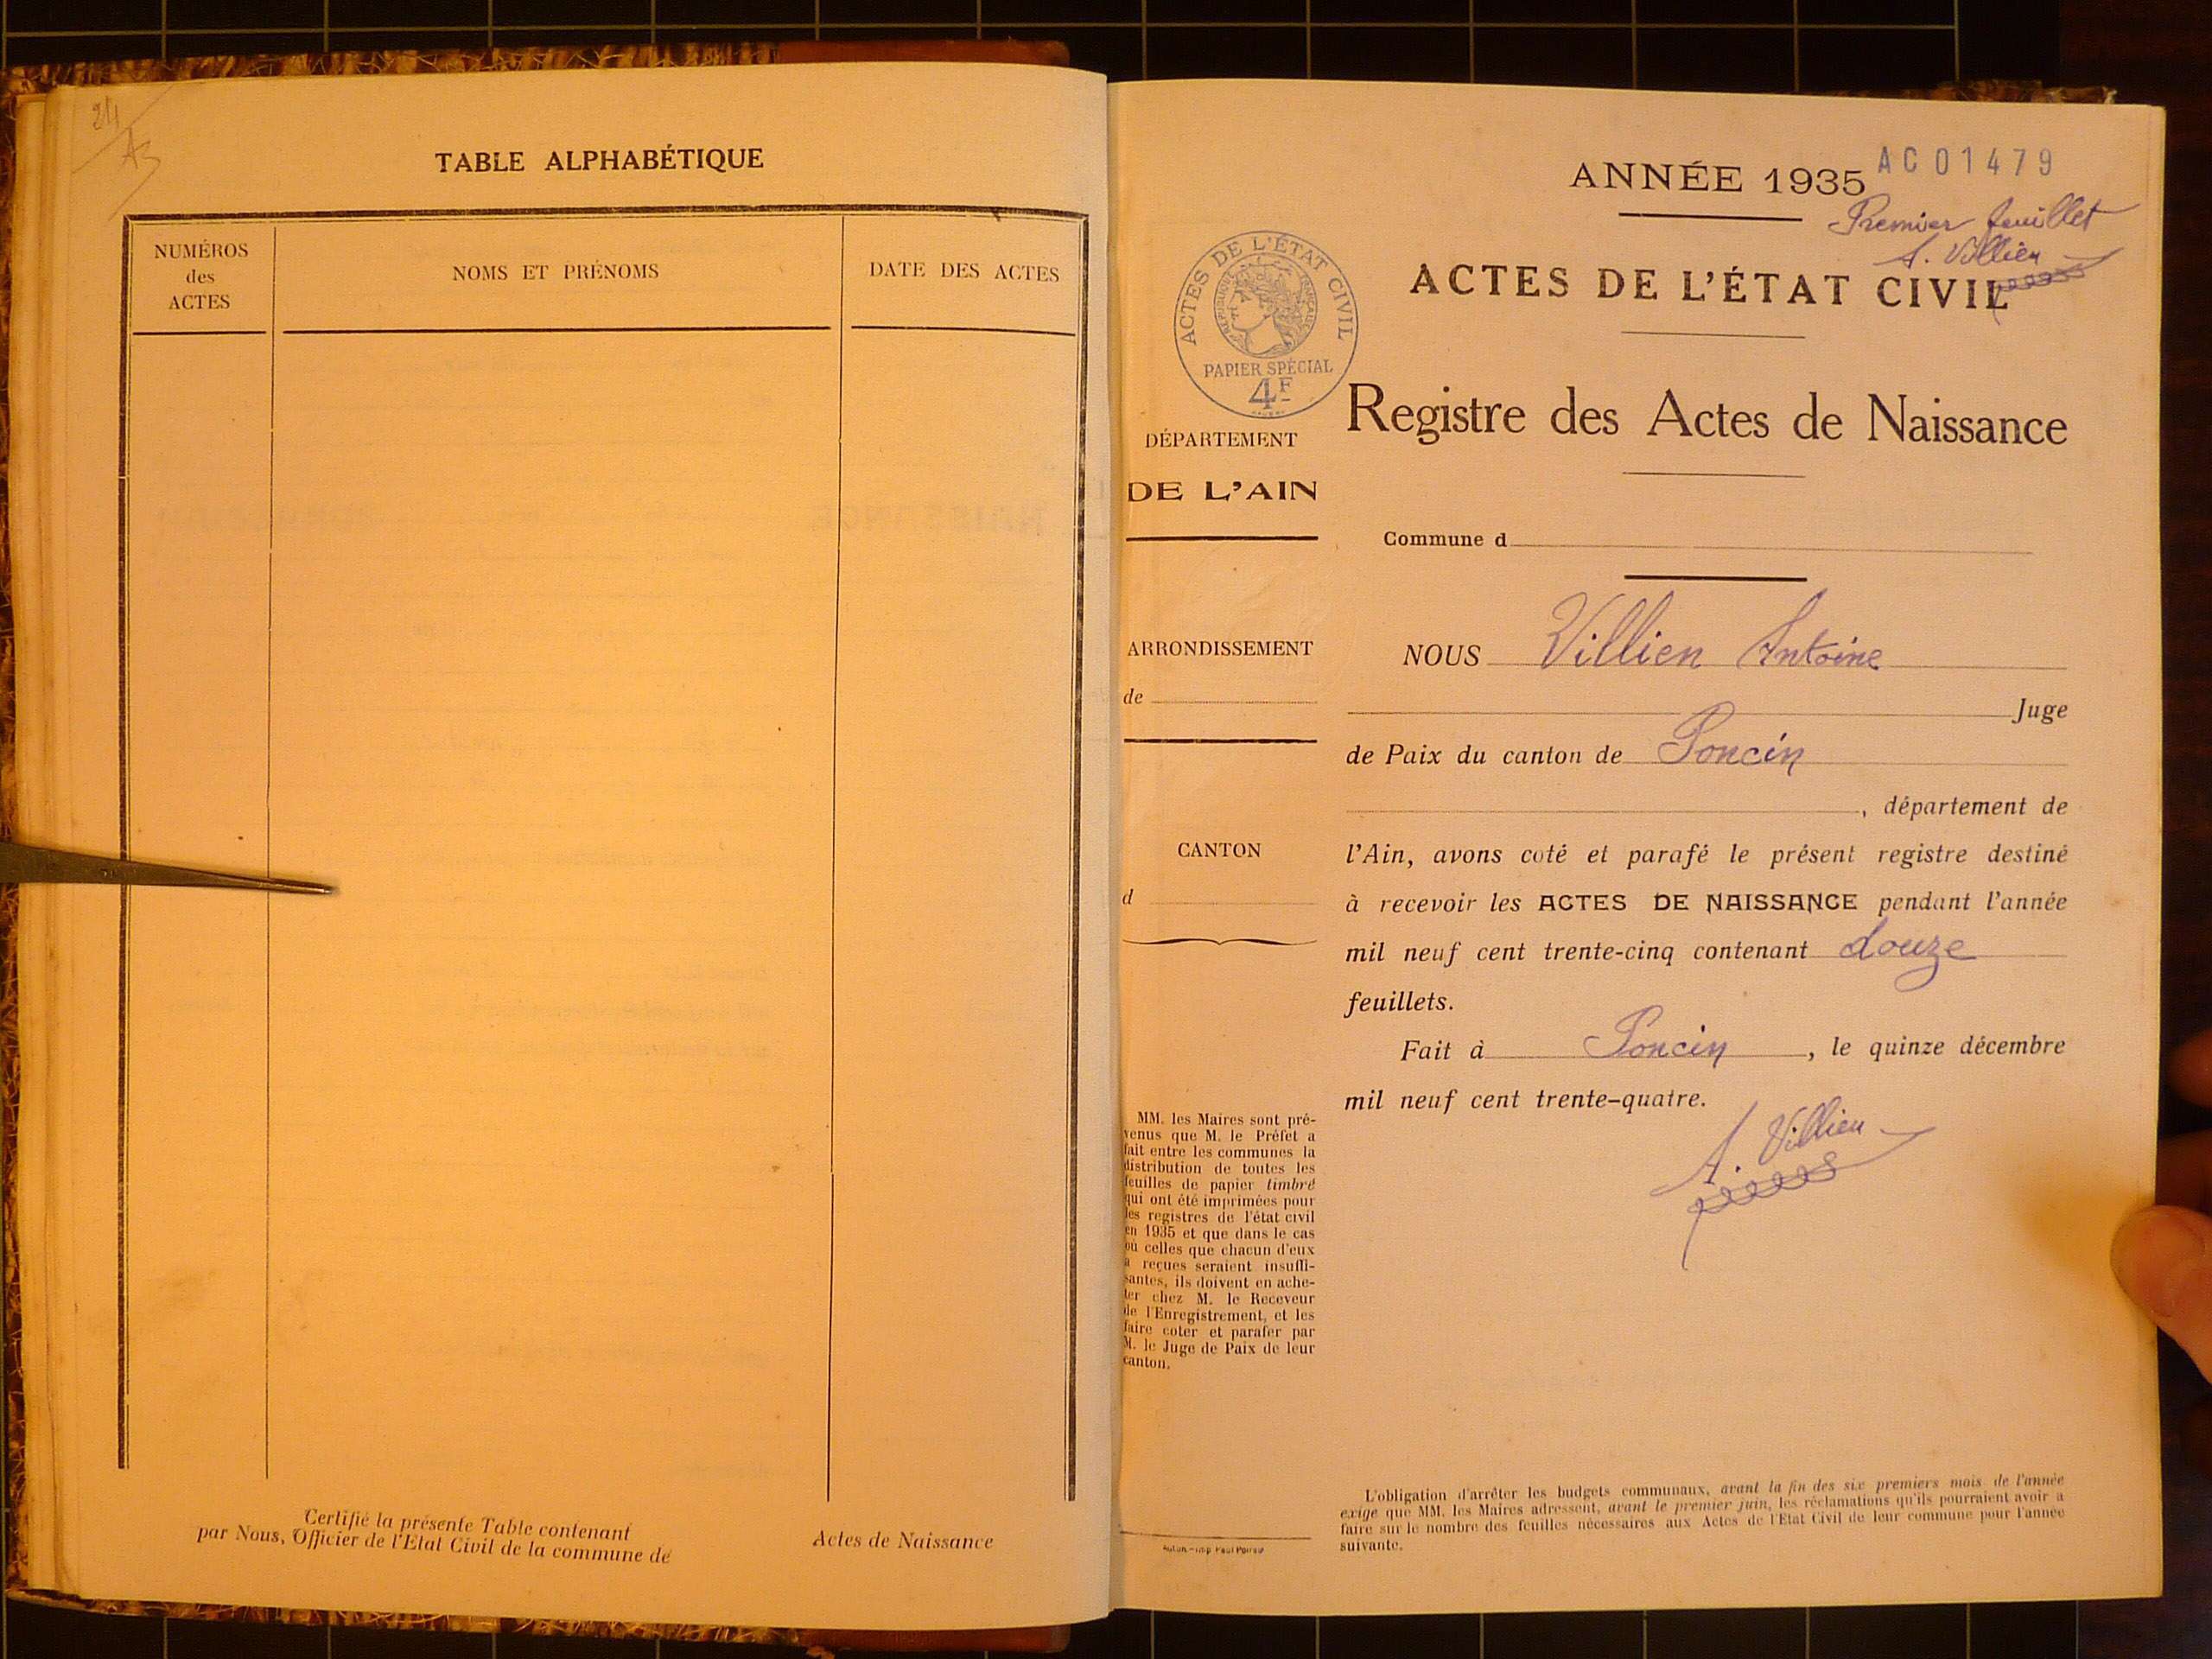 24
A3
TABLE ALPHABÉTIQUE
NUMÉROS
des
ACTES
NOMS ET PRÉNOMS
DATE DES ACTES
Certifié la présente Table contenant
Actes de Naissance
par Nous, Officier de l'Etat Civil de la commune de
ANNÉE 1935
AC01479
Premier feuillet
A. Villien
ACTES DE L'ÉTAT CIVIL
ACTES DE L'ÉTAT CIVIL
RÉPUBLIQUE FRANÇAISE
PAPIER SPÉCIAL
4F
Registre des Actes de Naissance
DÉPARTEMENT
DE L'AIN
Commune d
ARRONDISSEMENT
de
CANTON
d
NOUS Villien Antoine
Juge
de Paix du canton de Poncin
, département de
l'Ain, avons coté et parafé le présent registre destiné
à recevoir les ACTES DE NAISSANCE pendant l'année
mil neuf cent trente-cinq contenant douze
feuillets.
Fait à Poncin, le quinze décembre
mil neuf cent trente-quatre.
A. Villien
MM. les Maires sont pré-
venus que M. le Préfet a
fait entre les communes la
distribution de toutes les
feuilles de papier timbré
qui ont été imprimées pour
les registres de l'état civil
en 1935 et que dans le cas
où celles que chacun d'eux
a reçues seraient insuffi-
santes, ils doivent en ache-
ter chez M. le Receveur
de l'Enregistrement, et les
faire coter et parafer par
M. le Juge de Paix de leur
canton.
L'obligation d'arrêter les budgets communaux, avant la fin des six premiers mois de l'année
exige que MM. les Maires adressent, avant le premier juin, les réclamations qu'ils pourraient avoir à
faire sur le nombre des feuilles nécessaires aux Actes de l'Etat Civil de leur commune pour l'année
suivante.